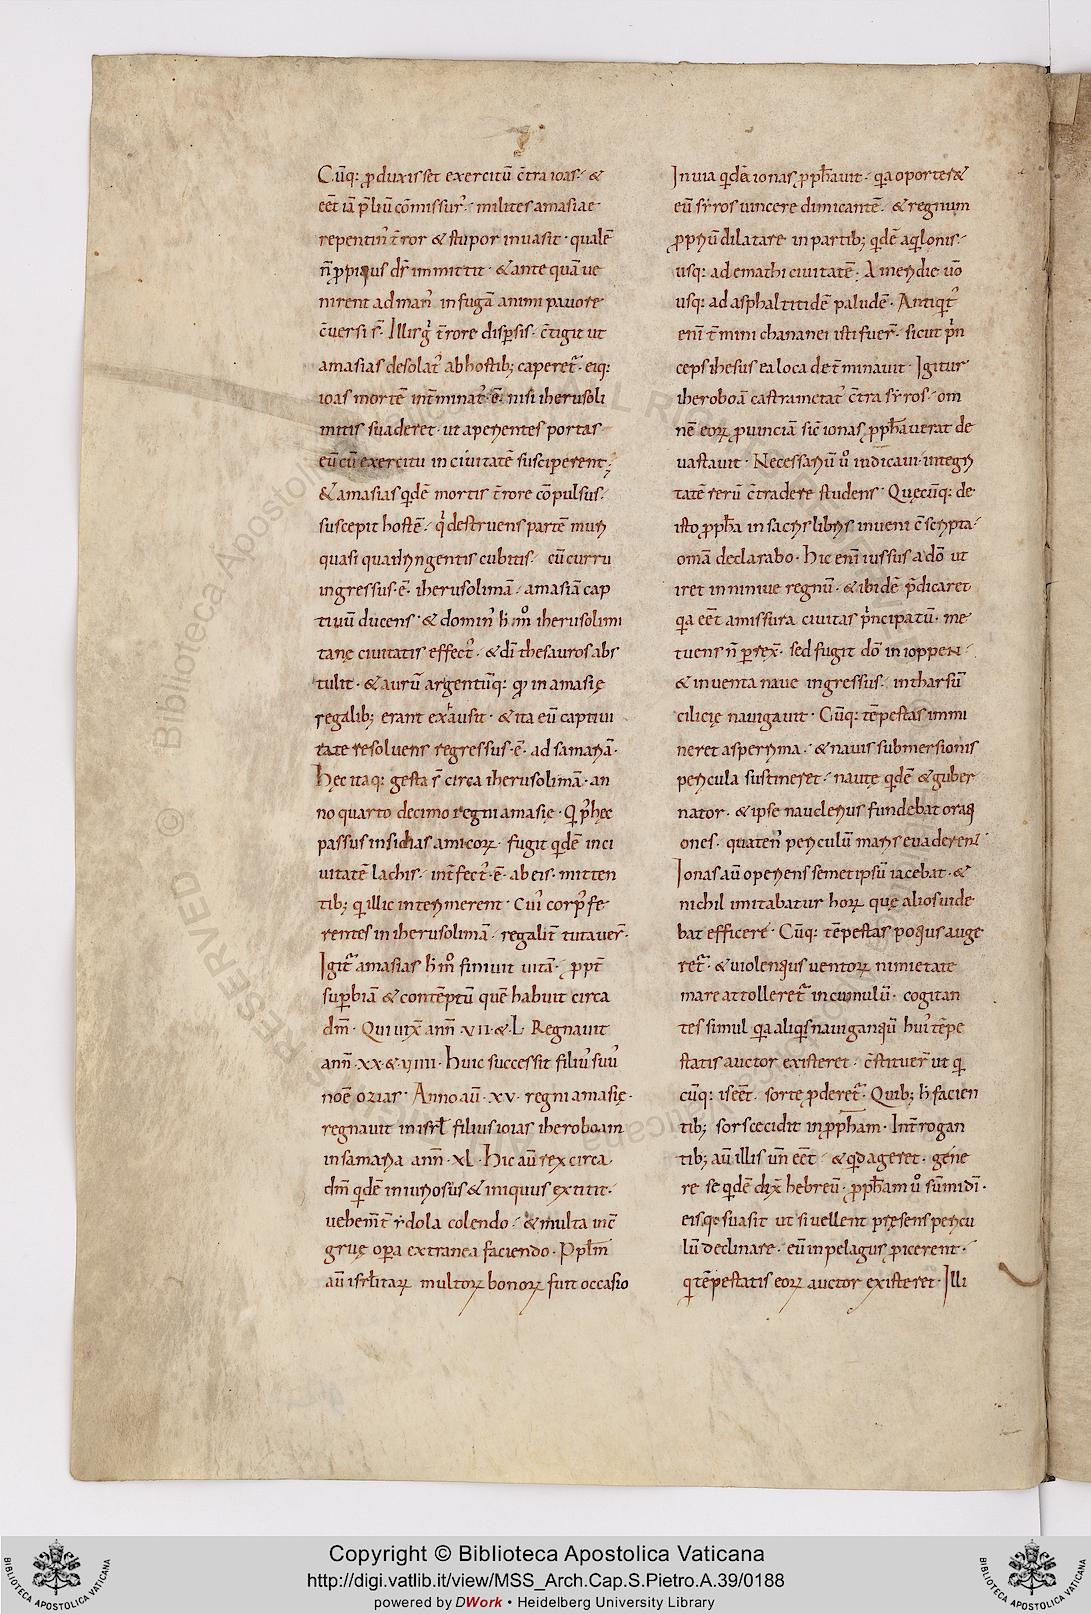 Cūq: ꝓduxisset exercitū c̄tra ioas· &
eēt iā p̄liū cōmissur᾿· milites amasiae
repentin᾿ t̄ror & stupor inuasit· qualē
n̄ ꝓpiqus ds̄ immittit· & ante quā ue
nirent ad man᾿ in fugā animi pauore
c̄uersi s̄· Illisq᾿ t̄rore disp̄sis· c̄tigit ut
amasias desolat᾿ ab hostib; caperet᾿· eiq:
ioas mortē int̄minat᾿·ē· nisi iherusoli
mitis suaderet· ut aperientes portas
eū cū exercitu in ciuitatē susciperent;
& amasias qdē mortis t̄rore cōpulsus·
suscepit hostē· q᾿ destruens partē muri
quasi quadringentis cubitis· cū curru
ingressus·ē· iherusolimā· amasiā cap
tiuū ducens· & domin᾿ h̄ m̊ iherusolimi
tanę ciuitatis effect᾿· & dī thesauros abs
tulit· & aurū argentūq: qđ in amasię
regalib; erant exhausit· & ita eū captiui
tate resoluens regressus·ē· ad samariā·
Hęc itaq: gesta s̄ circa iherusolimā· an
no quarto decimo regni amasię· Q p᾿ hęc
passus insidias amicoꝝ· fugit qdē in ci
uitatē lachis· int̄fect᾿·ē· ab eis· mitten
tib; q illic interimerent· Cui᾿ corp᾿ fe
rentes in iherusolimā· regalit̄ tutauer̄·
Igit᾿ amasias h̄ m̊ finiuit uitā· ꝓpt̄
sup̄biā & contēptū quē habuit circa
dm̄· Qui uix̄ ann̄ VII·&·L· Regnauit
ann̄ XX·&·VIIII· Huic successit filiu᾿ suu᾿
noē ozias· Anno aū·XV· regni amasię·
regnauit in isrł filius ioias iheroboam
in samaria ann̄·XL· Hic aū rex circa
dm̄ qdē iniuriosus & iniquus extitit·
uehem̄t̄ ydola colendo· & multa inc̄
gruę oꝑa extranea faciendo· Ppłm
aū isrłitaꝝ multoꝝ bonoꝝ fuit occasio
In uia qdē ionas ꝓph̄auit· qa oporteret
eū syros uincere dimicantē· & regnum
ꝓpriū dilatare in partib; qdē aqlonis·
usq: ad emathi ciuitatē· A meridie uō
usq: ad asphaltitidē paludē· Antiqt᾿
enī t̄mini chananei isti fuer̄· sicut prin
ceps ihesus ea loca det̄minauit· Igitur
iheroboā castrametat᾿ c̄tra syros· om
nē eoꝝ ꝓuinciā sic̄ ionas ꝓph̄auerat de
uastauit· Necessariū ů indicaui integri
tatē rerū c̄tradere studens· Quęcūq: de
isto ꝓph̄a in sacris libris inueni c̄scripta·
omā declarabo· Hic enī iussus a dō ut
iret in niniue regnū· & ibidē p̄dicaret
qa eēt amissura ciuitas p᾿ncipatū· me
tuens n̄ ꝑrex̄· sed fugit dō in ioppen·
& inuenta naue ingressus· in tharsū
cilicię nauigauit· Cūq: tēpestas immi
neret asperrima· & nauis submersionis
pericula sustineret· nautę qdē & guber
nator· & ipse nauclerius fundebat orati
ones· quaten᾿ periculū maris euaderent
Ionas aū operiens semetipsū iacebat· &
nichil imitabatur hoꝝ quę alios uide
bat efficere· Cūq: tēpestas potius auge
ret᾿· & uiolentius uentoꝝ nimietate
mare attolleret᾿ in cumulū· cogitan
tes simul qa aliqs nauigantiū hui᾿ tēpe
statis auctor existeret· c̄stituer̄ ut q
cūq: is eēt· sorte ꝓderet᾿· Quib; h̄ facien
tib; sors cecidit in ꝓph̄am· Int̄rogan
tib; aū illis un̄ eēt· & qd ageret· gene
re se qdē dix̄ hebreū· ꝓph̄am ů sūmi dī·
eisqe suasit ut si uellent pręsens pericu
lū declinare· eū in pelagus ꝓicerent·
q tēpestatis eoꝝ auctor existeret· Illi
Copyright © Biblioteca Apostolica Vaticana
http://digi.vatlib.it/view/MSS_Arch.Cap.S.Pietro.A.39/0188
powered by DWork • Heidelberg University Library